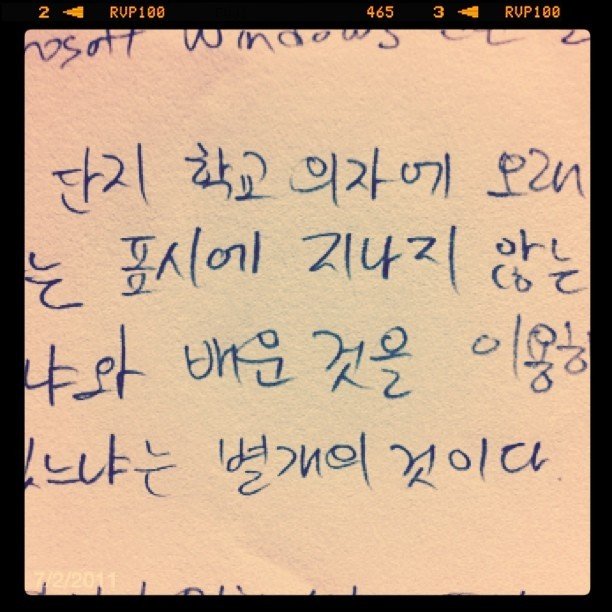 2 RVP100 465 3 RVP100
Windows
단지 학교 의자에 오래
는 표시에 지나지 않는
냐와 배운 것을 이용하
느냐는 별개의 것이다.
7/2/2011